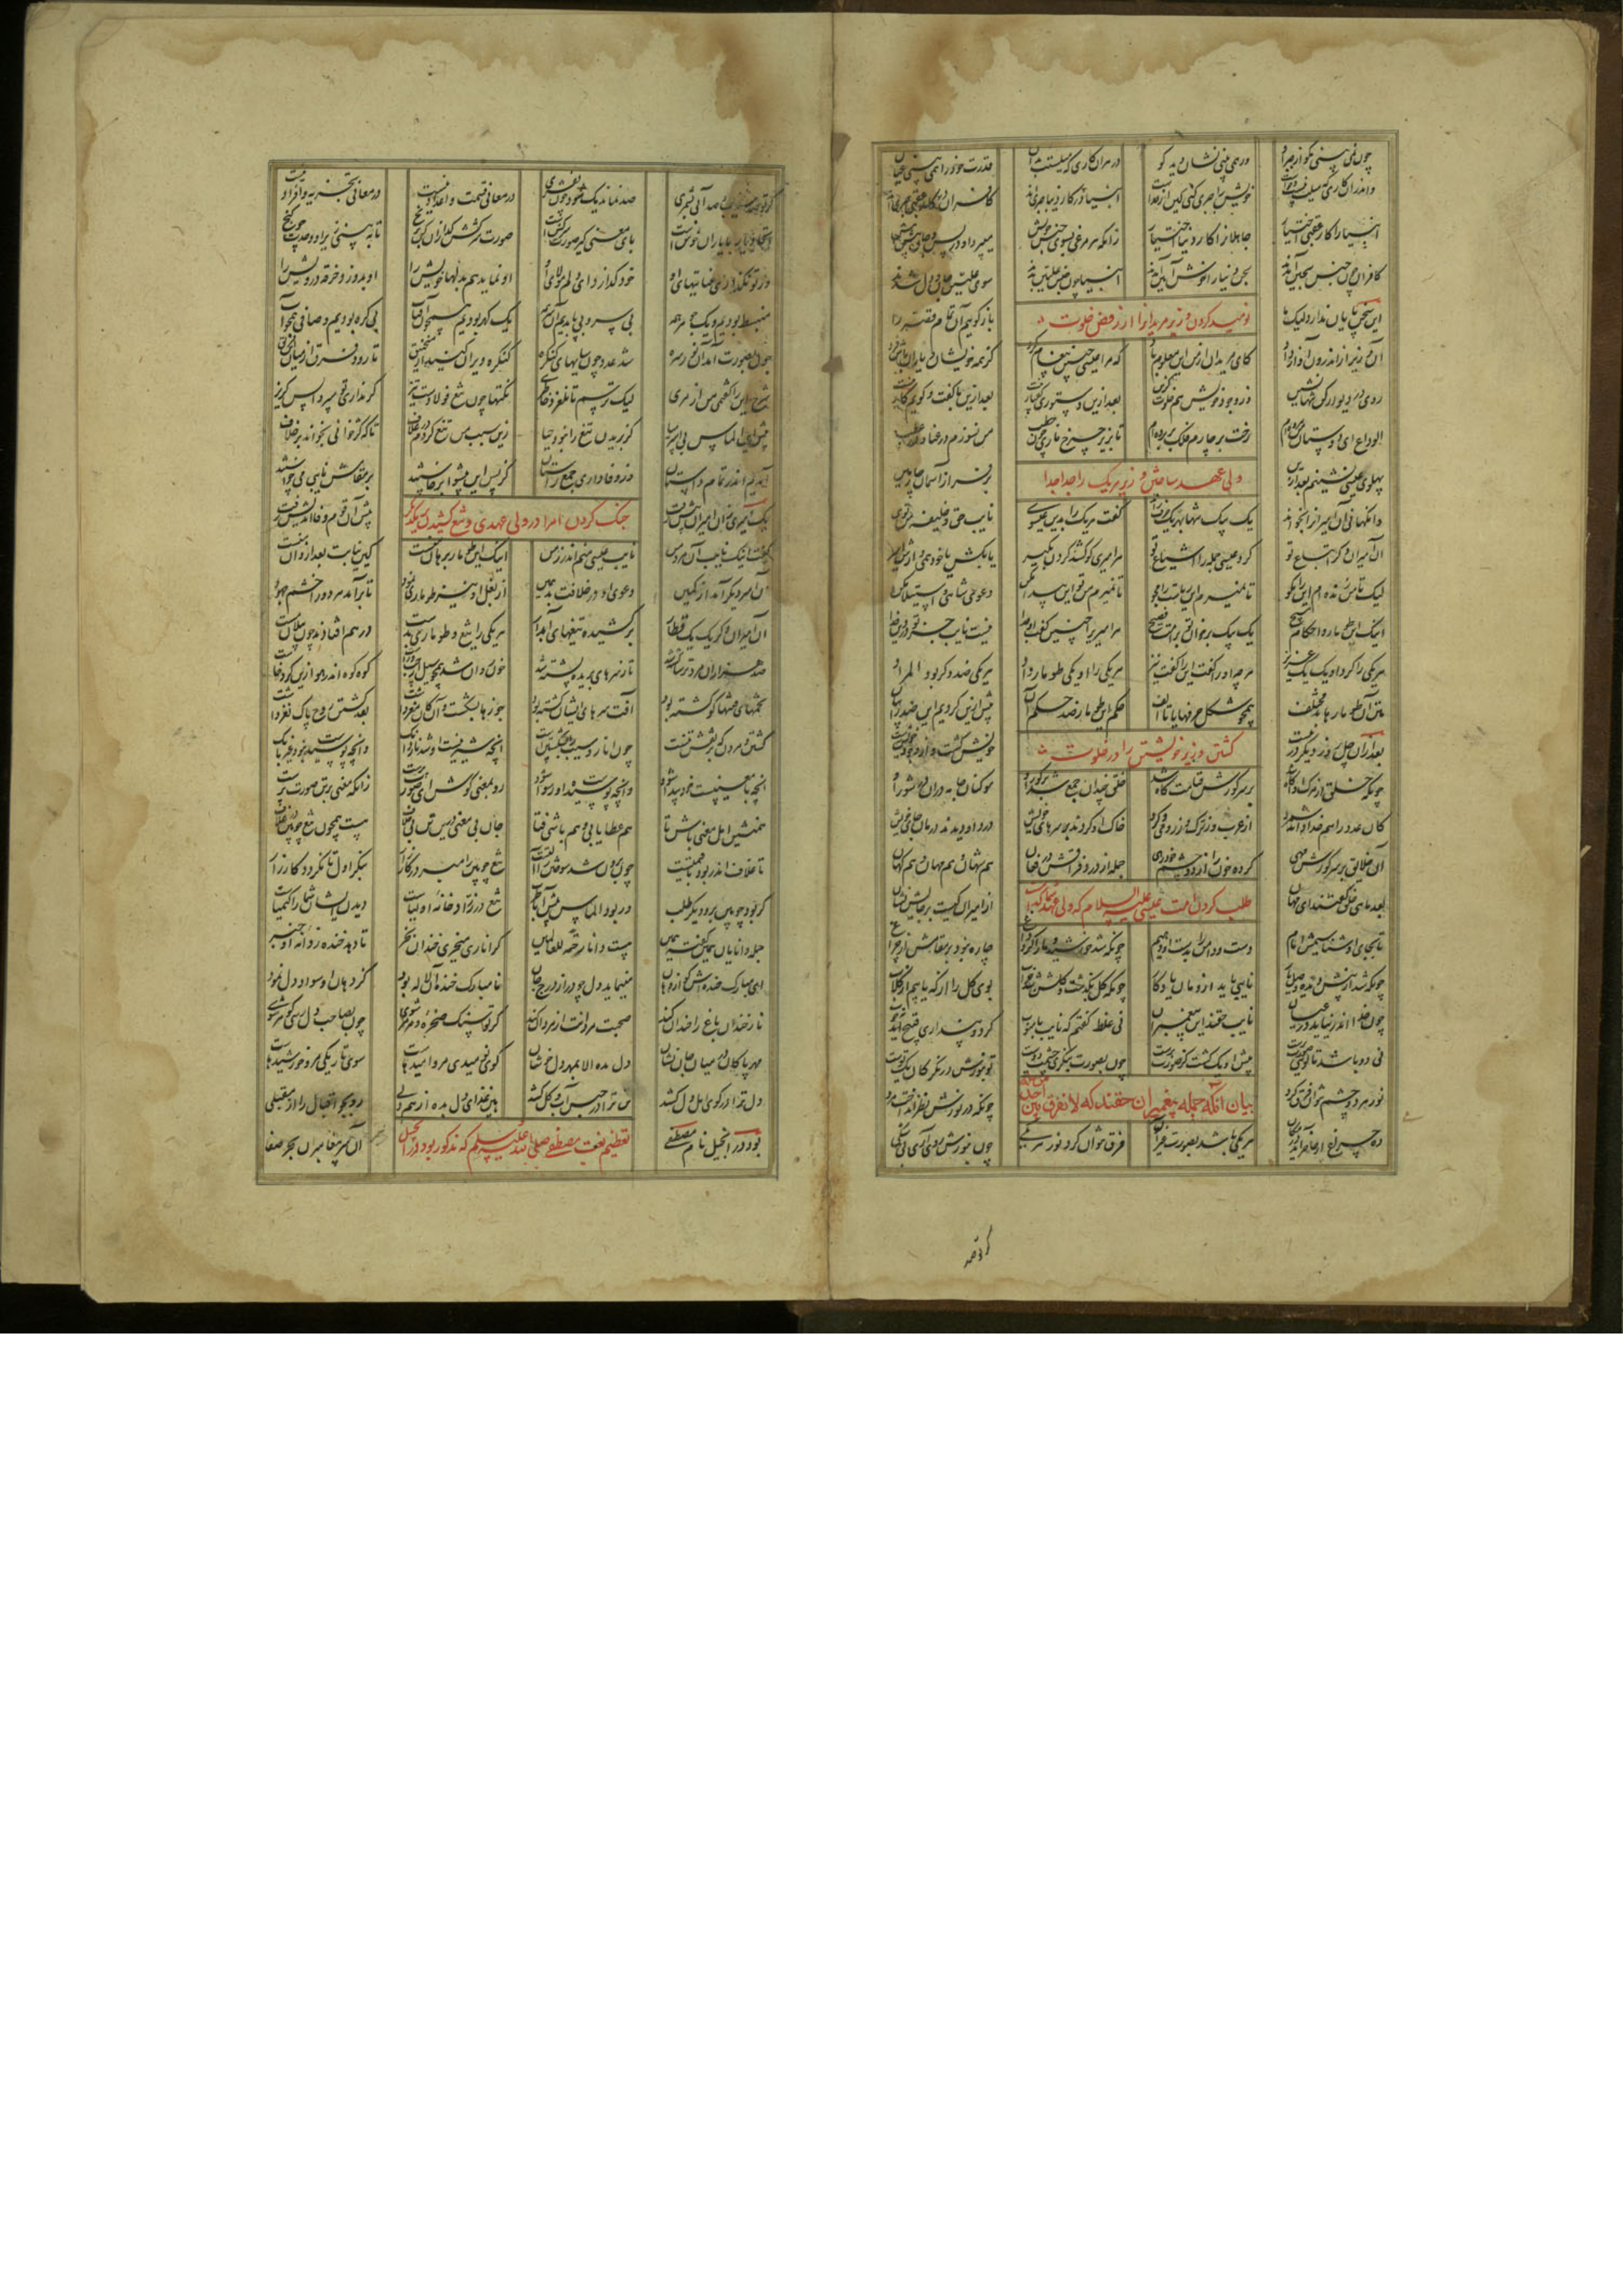 چون نمی بینی مگو از جبر او ورهمی بینی نشان دید کو در هران کاری که میلستت بدان قدرت خود را همی بینی عیان
واندران کاری که میلت نیست و خواست خویش را جبری کنی کین از خداست انبیا در کار دنیا جبری اند کافران در کار عقبی جبری اند
انبیا را کار عقبی اختیار جاهلانرا کار دنیا اختیار زانکه هر مرغی بسوی جنس خویش میپرد او در پس و جان پیش پیش
کافران چون جنس سجین آمدند سجن دنیا را خوش آیین آمدند انبیا چون جنس علیین بدند سوی علیین جان و دل شدند
این سخن پایان ندارد لیک ما باز گوییم آن تمام قصه را
نومید کردن وزیر مریدانرا از رفض خلوت
آن وزیر از اندرون آواز داد کای مریدان از من این معلوم باد که مرا عیسی چنین پیغام کرد کز همه خویشان و یاران باش فرد
روی در دیوار کن تنها نشین وز وجود خویش هم خلوت گزین بعد ازین دستوری گفتار نیست بعد ازین با گفت و گویم کار نیست
الوداع ای دوستان من مرده ام رخت بر چارم فلک بر برده ام تا بزیر چرخ ناری چون حطب من نسوزم در عنا و در عطب
پهلوی عیسی نشینم بعد ازین بر فراز آسمان چارمین
ولی عهد ساختن وزیر هر یک را جدا جدا
وانگهانی آن امیرانرا بخواند یک بیک تنها بهر یک حرف راند گفت هر یک را بدین عیسوی نایب حق و خلیفه من توی
آن امیران دگر اتباع تو کرد عیسی جمله را اشیاع تو هر امیری کو کشد گردن بگیر یا بکش یا خود همی دارش اسیر
لیک تا من زنده ام این وا مگو تا نمیرم این ریاست را مجو تا نمیرم من تو این پیدا مکن دعوی شاهی و استیلا مکن
اینک این طومار و احکام مسیح یک بیک بر خوان تو بر امت فصیح هر امیری را چنین گفت او جدا نیست نایب جز تو در دین خدا
هر یکی را کرد او یک یک عزیز هر چه اورا گفت اینرا گفت نیز هر یکی را او یکی طومار داد هر یکی ضد دگر بود المراد
متن آن طومارها بد مختلف همچو شکل حرفها یا تا الف حکم این طومار ضد حکم آن پیش ازین کردیم این ضد را بیان
بعد ازان چل روز دیگر در ببست خویش کشت و از وجود خود برست
کشتن وزیر خویشتن را در خلوت
چونکه خلق از مرگ او آگاه شد بر سر گورش قیامت گاه شد خلق چندان جمع شد بر گور او مو کنان جامه دران در شور او
کان عدد را هم خدا داند شمرد از عرب وز ترک وز رومی و کرد خاک او کردند بر سرهای خویش درد او دیدند درمان جای خویش
آن خلایق بر سر گورش مهی کرده خون را از دو چشم خود رهی جمله از درد فراقش در فغان هم شهان و هم مهان و هم کهان
طلب کردن امت عیسی علیه السلام که ولی عهد شما کیست
بعد ماهی خلق گفتند ای مهان از امیران کیست بر جایش نشان
تا بجای او شناسیمش امام دست و دامن را بدست او دهیم چونکه شد خورشید و ما را کرد داغ چاره نبود بر مقامش از چراغ
چونکه شد از پیش دیده وصل یار نایبی باید ازومان یادگار چونکه گل بگذشت و گلشن شد خراب بوی گل را از که یابیم از گلاب
چون خدا اندر نیاید در عیان نایب حقند این پیغمبران نی غلط گفتم که نایب با منوب گر دو پنداری قبیح آید نه خوب
نی دو باشد تا توی صورت پرست پیش او یک گشت کز صورت برست چون بصورت بنگری چشم تو دوست تو بنورش در نگر کان یک توست
نور هر دو چشم نتوان فرق کرد چونکه در نورش نظر انداخت مرد
بیان آنکه جمله پیغمبران حقند که لا نفرق بین احد من رسله
ده چراغ ار حاضر آید در مکان هر یکی باشد بصورت غیر آن فرق نتوان کرد نور هر یکی چون بنورش روی آری بی شکی
گر تو صد
گر تو صد سیب و صد آبی بشمری صد نماند یک شود چون بفشری در معانی قسمت و اعداد نیست در معانی تجزیه و افراد نیست
اتحاد یار با یاران خوشست پای معنی گیر صورت سرکشست صورت سرکش گدازان کن برنج تا ببینی زیر او وحدت چو گنج
ور تو نگدازی عنایتهای او خود گدازد ای دلم مولای او او نماید هم بدلها خویش را او بدوزد خرقه درویش را
منبسط بودیم و یک جوهر همه بی سر و بی پا بدیم آن سر همه یک گهر بودیم همچون آفتاب بی گره بودیم و صافی همچو آب
چون بصورت آمد آن نور سره شد عدد چون سایهای کنگره کنگره ویران کنید از منجنیق تا رود فرق از میان این فریق
شرح این را گفتمی من از مری لیک ترسم تا نلغزد خاطری نکتها چون تیغ فولادست تیز گر نداری تو سپر وا پس گریز
پیش این الماس بی اسپر میا کز بریدن تیغ را نبود حیا زین سبب من تیغ کردم در غلاف تا که کژ خوانی نخواند بر خلاف
آمدیم اندر تمام داستان وز وفاداری جمع راستان کز پس این پیشوا بر خاستند بر مقامش نایبی می خواستند
جنگ کردن امرا در ولی عهدی و تیغ کشیدن بر یکدیگر
یک امیری زان امیران پیش رفت پیش آن قوم وفا اندیش رفت
گفت اینک نایب آن مرد من نایب عیسی منم اندر زمن اینک این طومار برهان منست کین نیابت بعد ازو آن منست
آن امیر دیگر آمد از کمین دعوی او در خلافت بد همین از بغل او نیز طوماری نمود تا بر آمد هر دو را خشم جهود
آن امیران دگر یک یک قطار بر کشیده تیغهای آبدار هر یکی را تیغ و طوماری بدست در هم افتادند چون پیلان مست
صد هزاران مرد ترسا کشته شد تا ز سرهای بریده پشته شد خون روان شد همچو سیل از چپ و راست کوه کوه اندر هوا زین گرد خاست
تخمهای فتنها کو کشته بود آفت سرهای ایشان گشته بود جوزها بشکست و آن کان مغز داشت بعد کشتن روح پاک نغز داشت
کشتن و مردن که بر نقش تنست چون انار و سیب را بشکستنست آنچه شیرینست او شد ناردانگ وانچه پوسیدست نبود غیر بانگ
آنچه با معنیست خود پیدا شود وانچه پوسیدست او رسوا شود رو بمعنی کوش ای صورت پرست زانکه معنی بر تن صورت پرست
همنشین اهل معنی باش تا هم عطا یابی و هم باشی فتا جان بی معنی درین تن بی خلاف هست همچون تیغ چوبین در غلاف
تا غلاف اندر بود با قیمتست چون برون شد سوختن را آلتست تیغ چوبین را مبر در کارزار بنگر اول تا نگردد کار زار
گر بود چوبین برو دیگر طلب ور بود الماس پیش آ با طرب تیغ در زرادخانه اولیاست دیدن ایشان شما را کیمیاست
جمله دانایان همین گفته همین هست دانا رحمة للعالمین گر اناری میخری خندان بخر تا دهد خنده ز دانه او خبر
ای مبارک خنده اش کو از دهان مینماید دل چو در از درج جان نامبارک خنده آن لاله بود کز دهان او سواد دل نمود
نار خندان باغ را خندان کند صحبت مردانت از مردان کند گر تو سنگ صخره و مرمر شوی چون بصاحب دل رسی گوهر شوی
مهر پاکان در میان جان نشان دل مده الا بمهر دل خوشان کوی نومیدی مرو امیدهاست سوی تاریکی مرو خورشیدهاست
دل ترا در کوی اهل دل کشد تن ترا در حبس آب و گل کشد هین غذای دل بده از هم دلی رو بجو اقبال را از مقبلی
تعظیم نعت مصطفی صلی الله علیه و سلم که مذکور بود در انجیل
بود در انجیل نام مصطفی آن سر پیغامبران بحر صفا